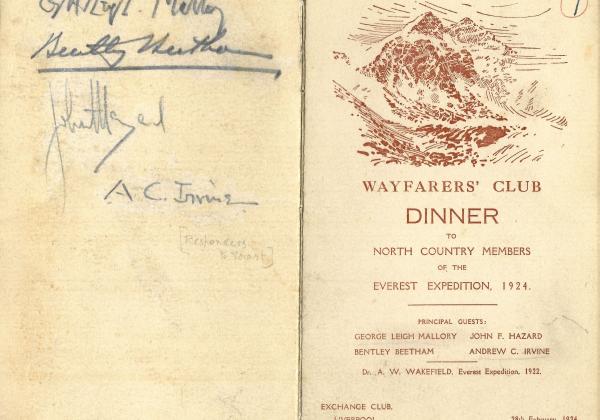 George L. Mallory
Bentley Beetham
John Hazard
A C. Irvine
[Responders
to Toast]
1
WAYFARERS' CLUB
DINNER
TO
NORTH COUNTRY MEMBERS
OF THE
EVEREST EXPEDITION, 1924.
PRINCIPAL GUESTS:
GEORGE LEIGH MALLORY JOHN F. HAZARD
BENTLEY BEETHAM ANDREW C. IRVINE
Dr. A. W. WAKEFIELD, Everest Expedition, 1922.
EXCHANGE CLUB,
LIVERPOOL
28th February, 1924